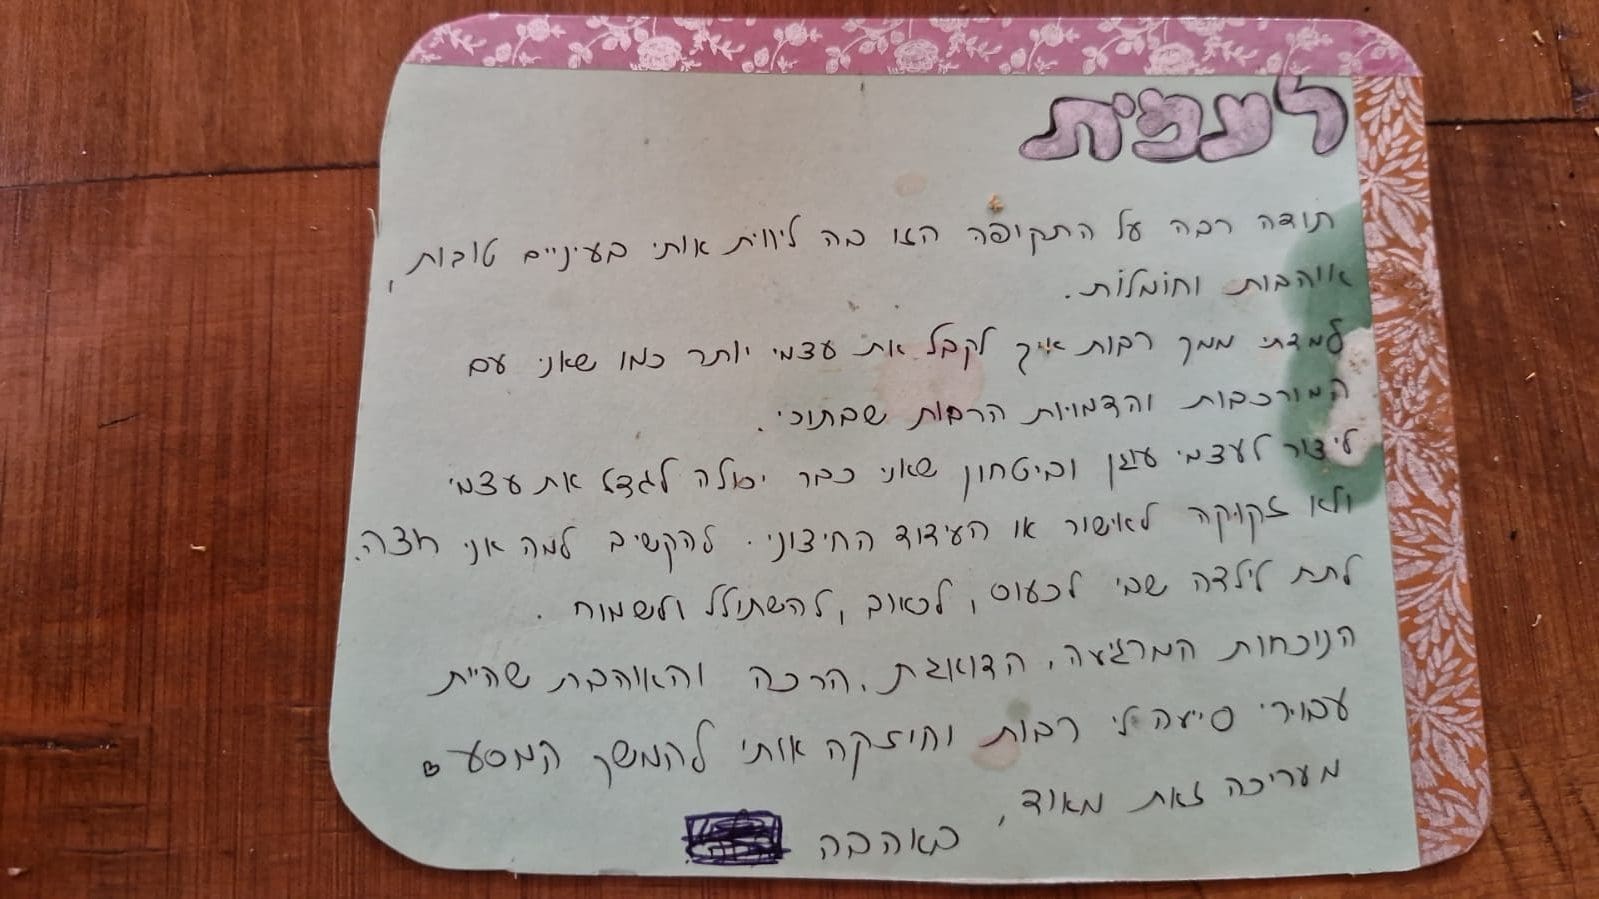 לעמית
תודה רבה על התקופה הזו בה ליווית אותי בעיניים טובות,
אוהבות וחומלות.
למדתי ממך רבות איך לקבל את עצמי יותר כמו שאני עם
המורכבות והדמויות הרבות שבתוכי.
ליצור לעצמי עוגן וביטחון שאני כבר יכולה לגדל את עצמי
ולא זקוקה לאישור או העידוד החיצוני. להקשיב למה אני רוצה.
לתת לילדה שבי לכעוס, לכאוב, להשתולל ולשמוח.
הנוכחות המרגיעה, הדואגת, הרכה והאוהבת שהיית
עבורי סייעה לי רבות וחיזקה אותי להמשך המסע
מעריכה זאת מאוד,
באהבה